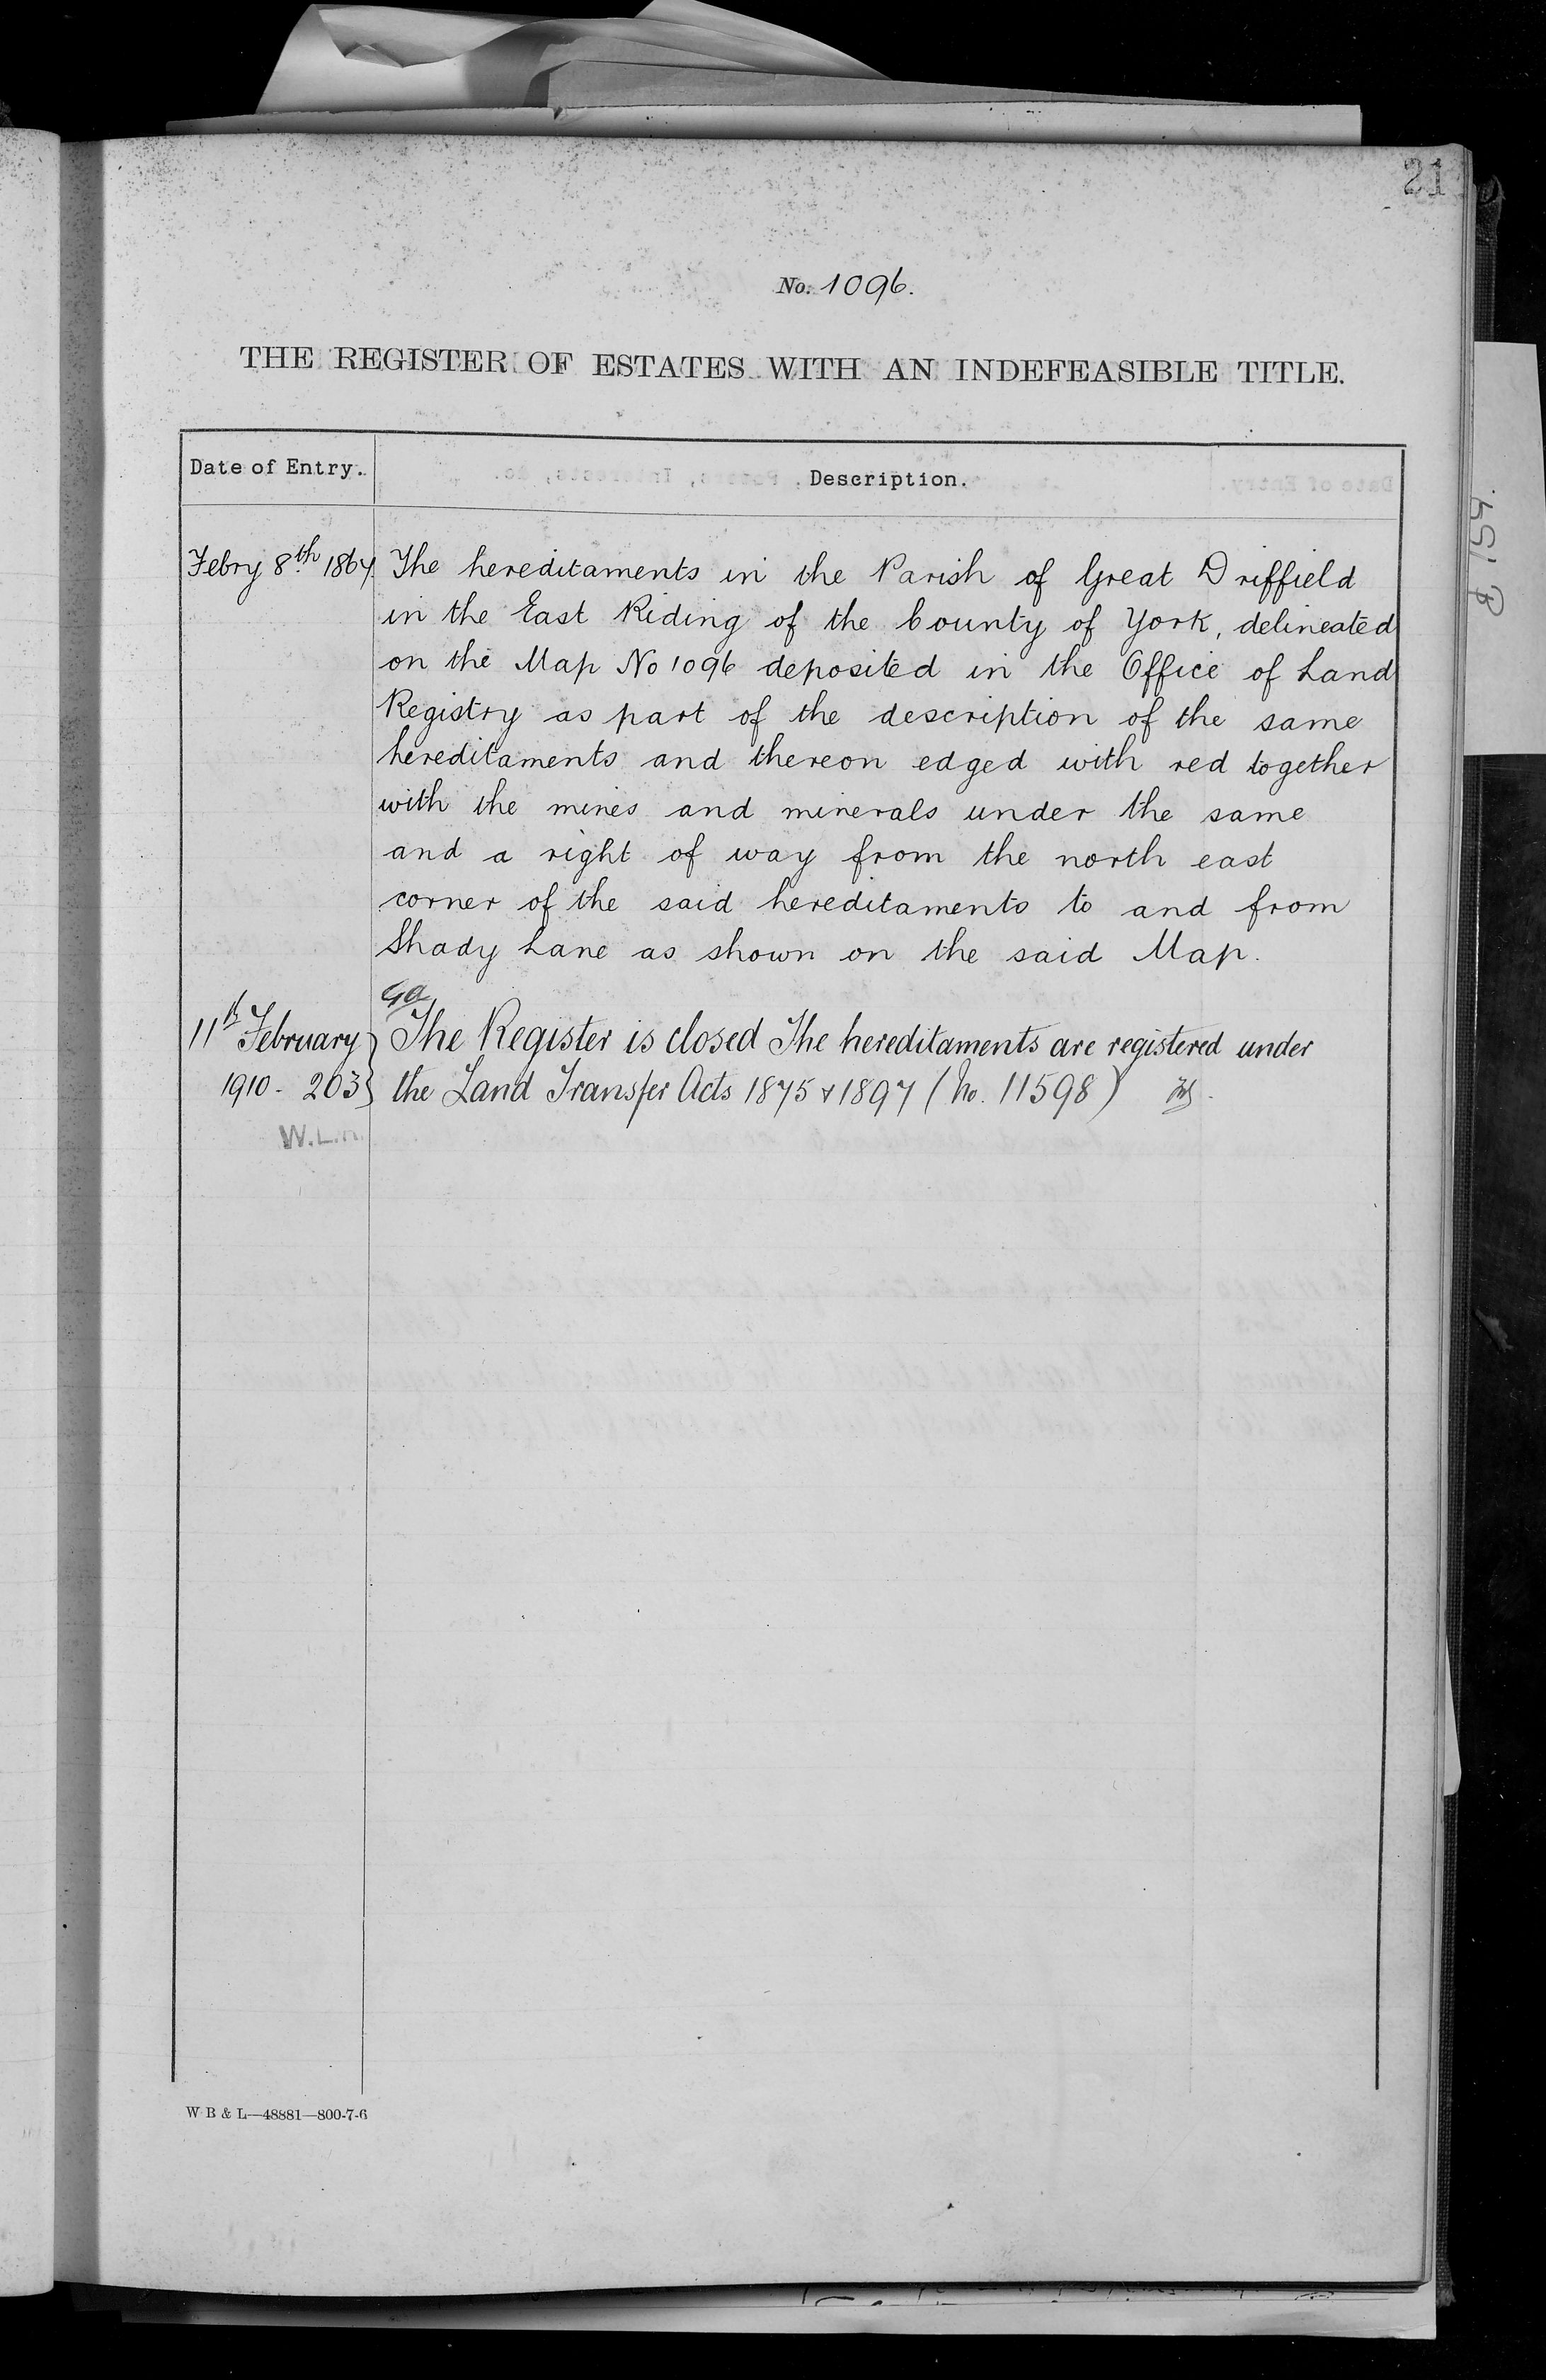 21
No. 1096.
THE REGISTER OF ESTATES WITH AN INDEFEASIBLE TITLE.
Date of Entry.
Description.
Febry 8th 1867
The hereditaments in the Parish of Great Driffield
in the East Riding of the County of York, delineated
on the Map No 1096 deposited in the Office of Land
Registry as part of the description of the same
hereditaments and thereon edged with red together
with the mines and minerals under the same
and a right of way from the north east
corner of the said hereditaments to and from
Shady Lane as shown on the said Map.
11th February
1910 - 203
The Register is closed The hereditaments are registered under
the Land Transfer Acts 1875 & 1897 (No. 11598)
W B & L—48881—800-7-6